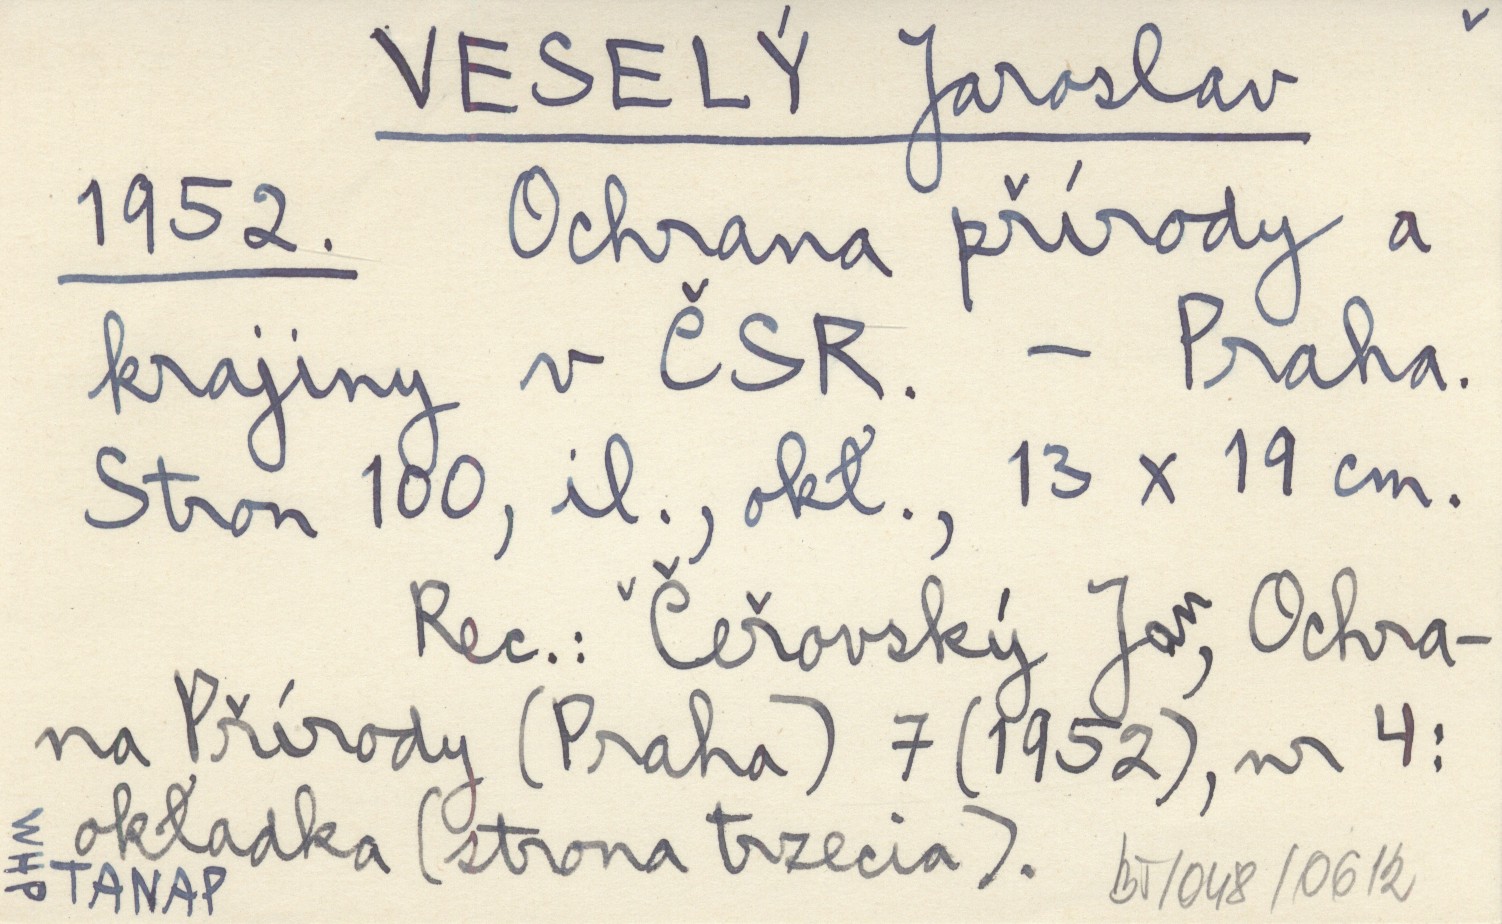 VESELÝ Jaroslav
1952. Ochrana přírody a
krajiny v ČSR. – Praha.
Stron 100, il., okł., 13 x 19 cm.
Rec.: Čeřovský Jan, Ochra-
na Přírody (Praha) 7 (1952), nr 4:
okładka (strona trzecia).
WHP
TANAP
BT/048/0612